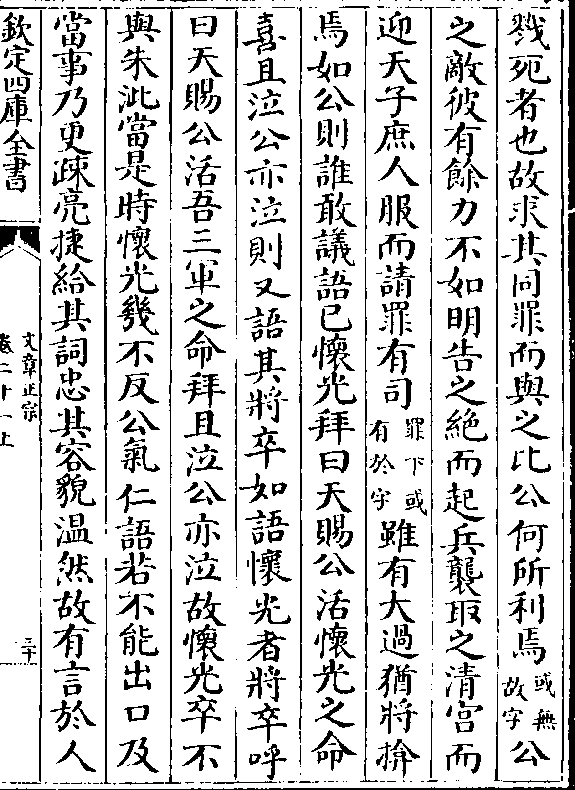 戮死者也故求其同罪而與之比公何所利焉或無故字公
之敵彼有餘力不如明告之絶而起兵襲取之清宫而
迎天子庶人服而請罪有司罪下或有於字雖有大過猶將揜
焉如公則誰敢議語已懷光拜曰天賜公活懷光之命
喜且泣公亦泣則又語其將卒如語懷光者將卒呼
曰天賜公活吾三軍之命拜且泣公亦泣故懷光卒不
與朱泚當是時懷光幾不反公氣仁語若不能出口及
當事乃更疎亮捷給其詞忠其容貌温然故有言於人
欽定四庫全書
文章正宗
卷二十一上
三十